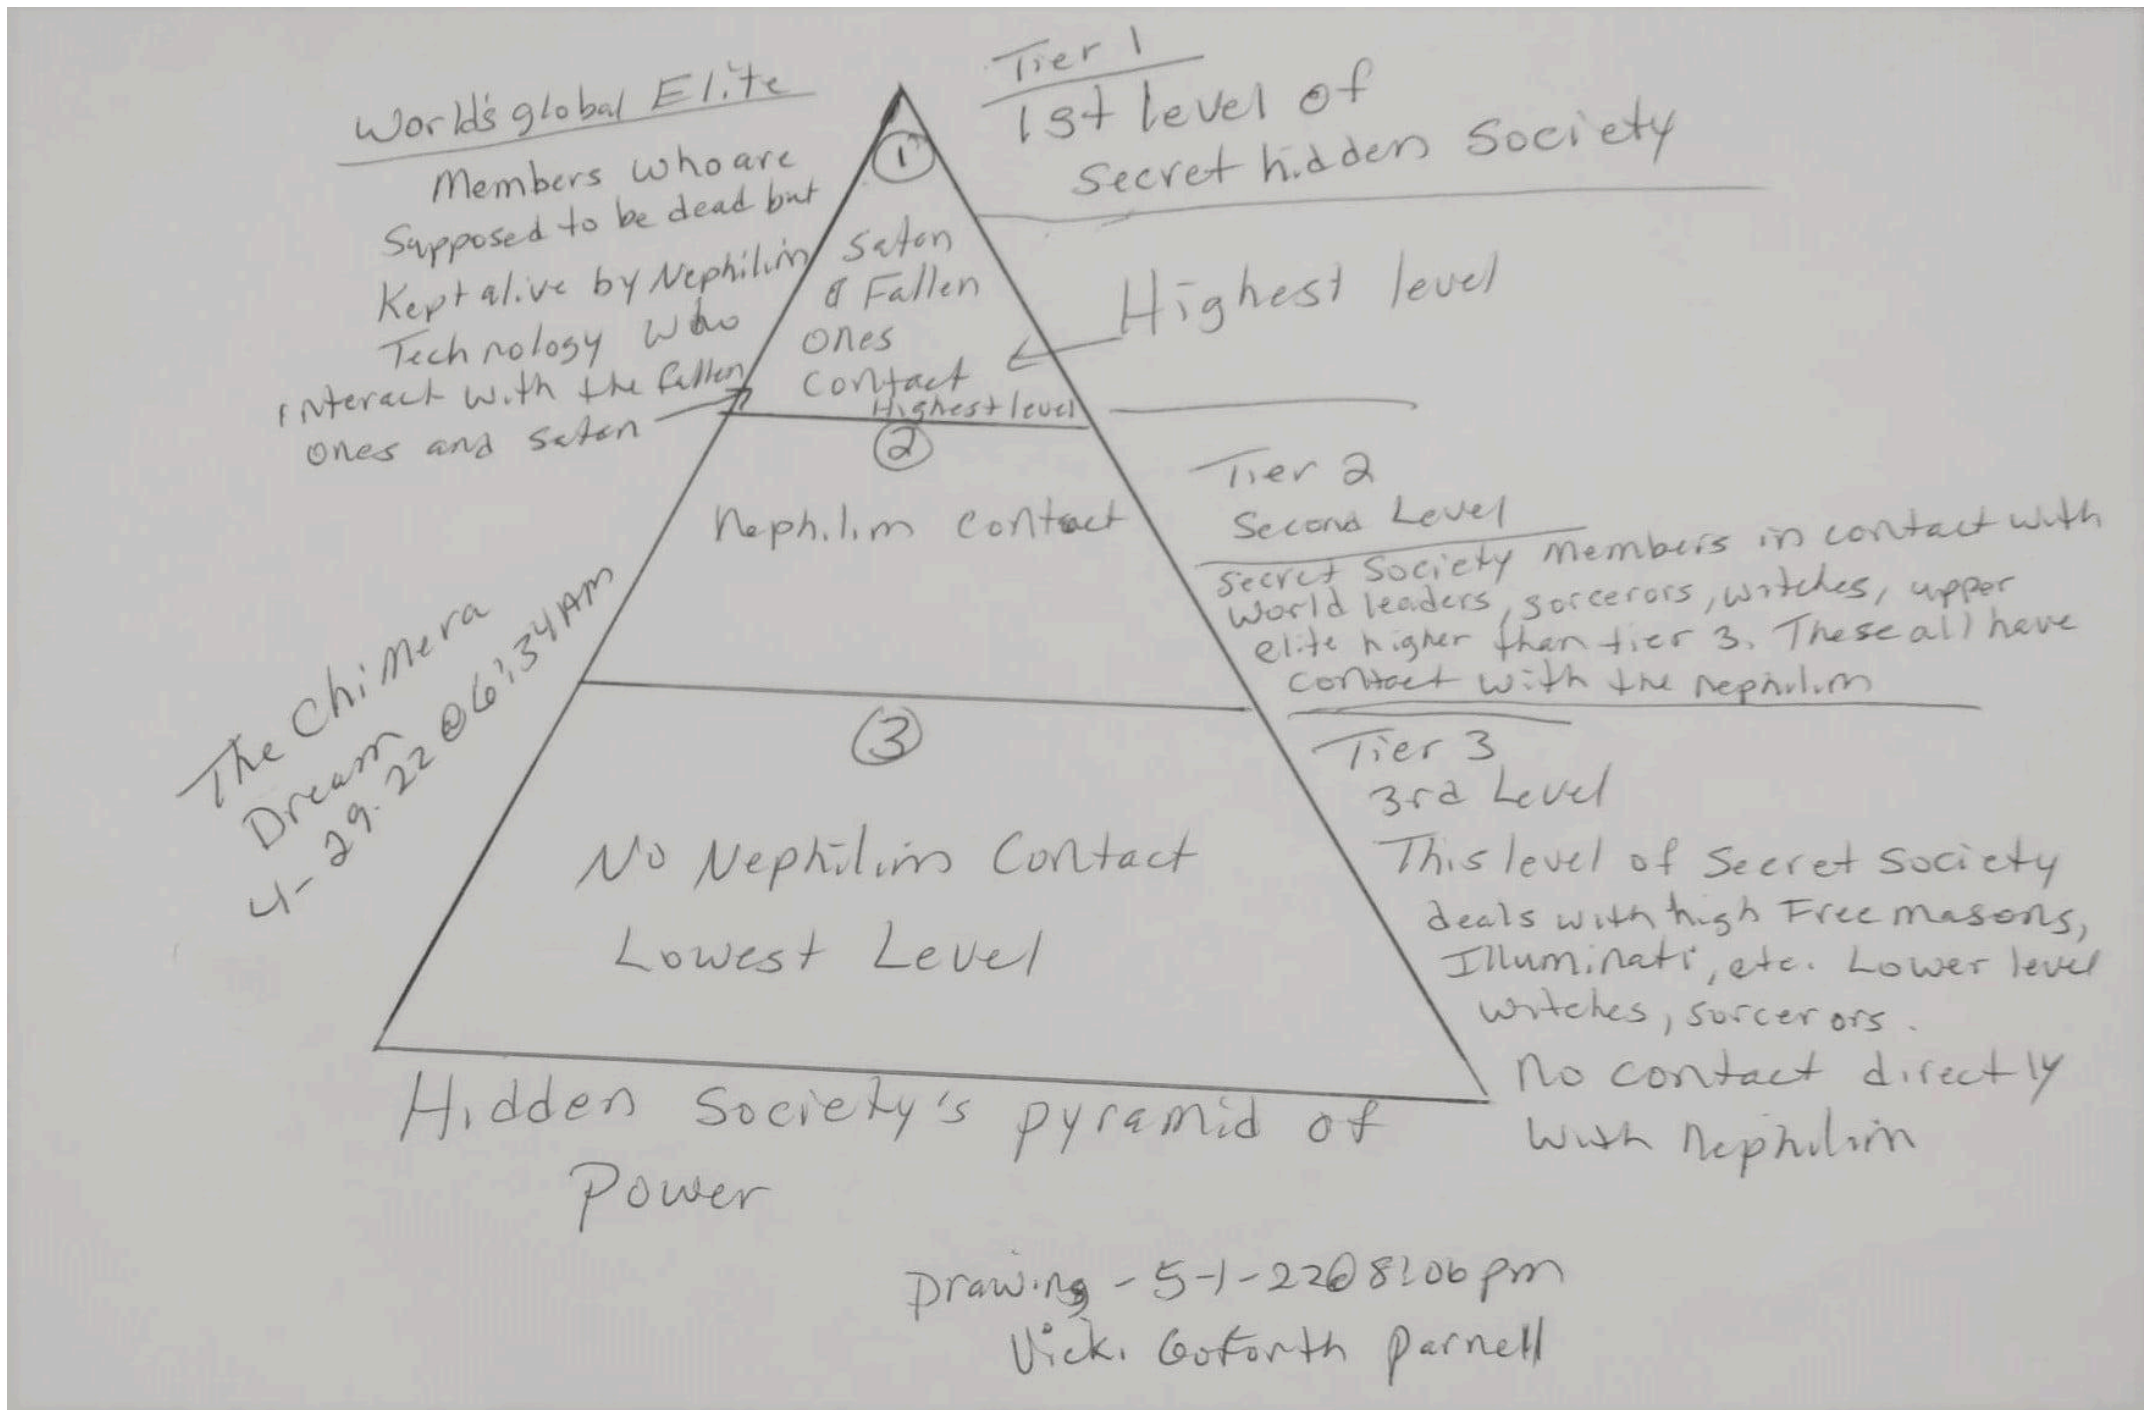 World's global Elite
Members who are
Supposed to be dead but
Kept alive by Nephilim
Technology who
interact with the fallen
ones and satan
Tier 1
1st level of
secret hidden society
Highest level
1
Satan
& Fallen
ones
contact
Highest level
2
Nephilim contact
Tier 2
Second Level
secret society members in contact with
world leaders, sorcerors, witches, upper
elite higher than tier 3. These all have
contact with the nephilim
The Chimera
Dream
4-29-22 @ 6:34 AM
3
No Nephilim Contact
Lowest Level
Tier 3
3rd Level
This level of secret society
deals with high Freemasons,
Illuminati, etc. Lower level
witches, sorcerors.
no contact directly
with nephilim
Hidden Society's pyramid of
Power
Drawing - 5-1-22@8:06pm
Vicki Goforth Parnell